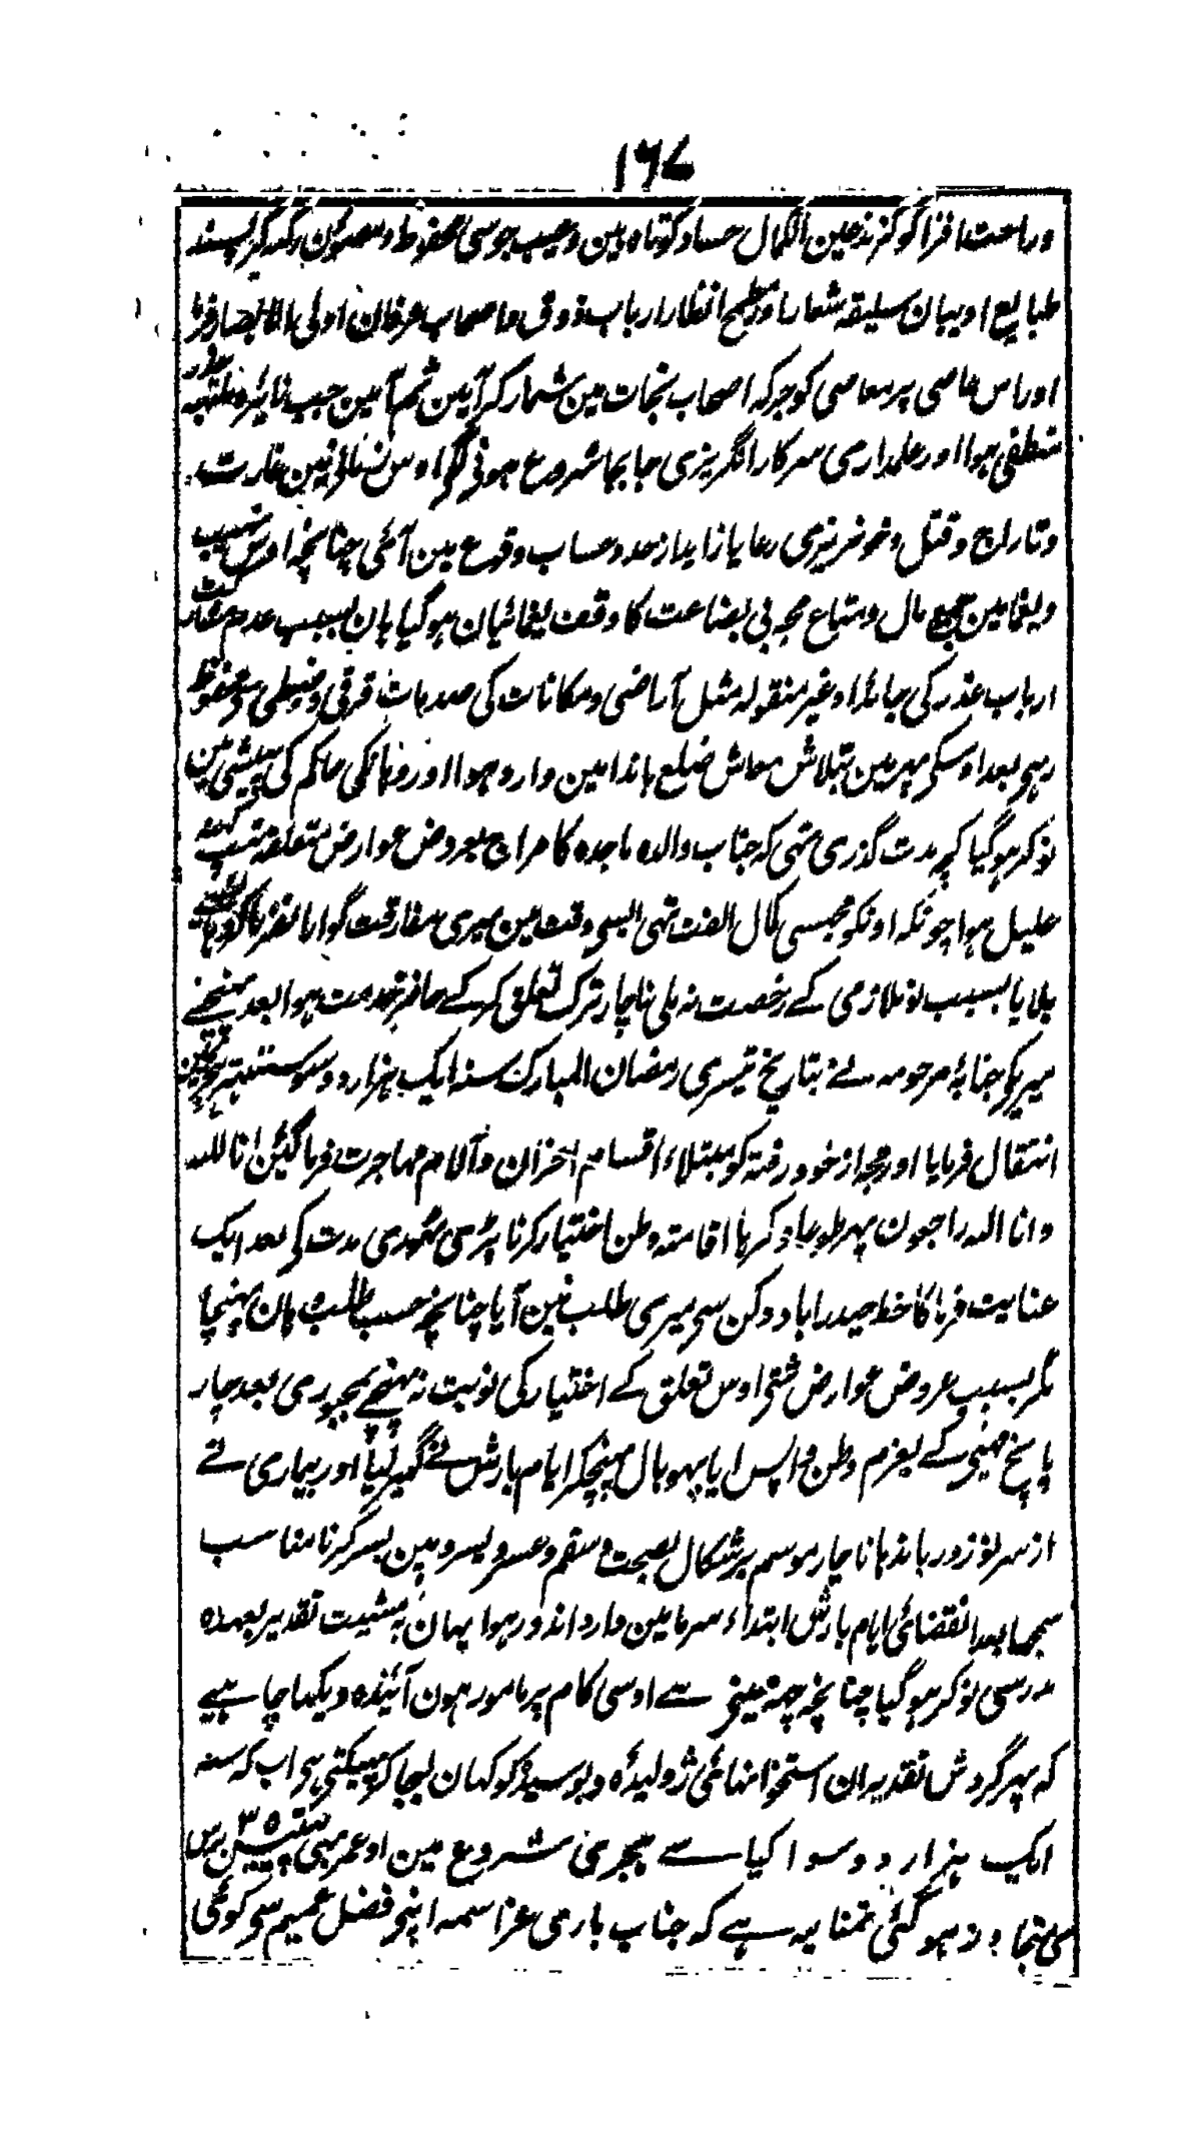 ۱۶۷
وراحت افزا کو گزند عین الکمال حساد کوتاہ بین وعیب جوسی محفوظ ومصئون رکھکر پسند
طبایع ادیبان سلیقہ شعار اور مطمح انظار ارباب ذوق واصحاب عرفان اولی الابصار فرما
اور اس عاصی پر معاصی کو جرکہ اصحاب نجات مین شمار کر آمین ثم آمین جب نائرہ ملتہبہ غدر
منطفی ہوا اور عملداری سرکار انگریزی جا بجا شروع ہوئی گو اوس زمانہ مین غارت
وتاراج وقتل وخونریزی رعایا زاید از حد وحساب وقوع مین آئی چنانچہ اوس نہب
ویغما مین جمیع مال ومتاع مجہ بی بضاعت کا وقف یغمائیان ہوگیا ہان بسبب عدم مشارکت
ارباب غدر کی جائداد غیر منقولہ مثل آراضی ومکانات کی صدمات قرقی وضبطی سی محفوظ
رہی بعد اوسکی پہر مین بتلاش معاش ضلع باندا مین وارد ہوا اور وہانکی حاکم کی پیشی مین
نوکر ہوگیا کچہ مدت گذری تہی کہ جناب والدہ ماجدہ کا مزاج بعروض عوارض متعلقہ تپ کہنہ
علیل ہوا چونکہ اونکو مجہسی کمال الفت تہی ایسی وقت مین میری مفارقت گوارا نفرماکر وہانسے
بلایا بسبب نو ملازمی کے رخصت نہ ملی ناچار ترک تعلق کرکے حاضر خدمت ہوا بعد پہنچنے
میریکی جنابہ مرحومہ نے بتاریخ تیسری رمضان المبارک سنہ ایک ہزار دو سو ہجری مین
انتقال فرمایا اور مجہ از خود رفتہ کو مبتلاء اقسام احزان وآلام مہاجرت فرما گئین انا للہ
وانا الیہ راجعون پہر طوعا وکرہا اقامتہ وطن اختیار کرنا پڑی تہوڑی مدت کی بعد ایک
عنایت فرما کا خط حیدراباد دکن سی میری طلب مین آیا چنانچہ حسب طلب وہان پہنچا
مگر بسبب عروض عوارض شتی اوس تعلق کے اختیار کی نوبت نہ پہنچے بمجبوری بعد چار
پانچ مہینی کے بعزم وطن واپس ایا بہوپال پہنچکر ایام بارش نے گہیر لیا اور بیماری نے
از سر نو زور باندہا ناچار موسم برشکال بصحت وسقم وعسر ویسر وہین بسر کرنا مناسب
سمجہا بعد انقضائی ایام بارش ابتداء سرما مین وارد اندور ہوا یہان بمشیت تقدیر بعہدہ
مدرسی نوکر ہوگیا چنانچہ چہہ مہینی سے اوسی کام پر مامور ہون آئندہ دیکہا چاہیے
کہ پہر گردش تقدیر ان استخوانہائی ژولیدہ وبوسیدہ کو کہان لیجا کر پہینکتی ہی اب کہ سنہ
ایک ہزار دو سو اکیاسے ہجری شروع مین اور عمر بہی پینتیس ۳۵ برس
سی متجاوز ہوگئی تمنا یہ ہے کہ جناب باری عز اسمہ اپنی فضل عمیم سی کوئی